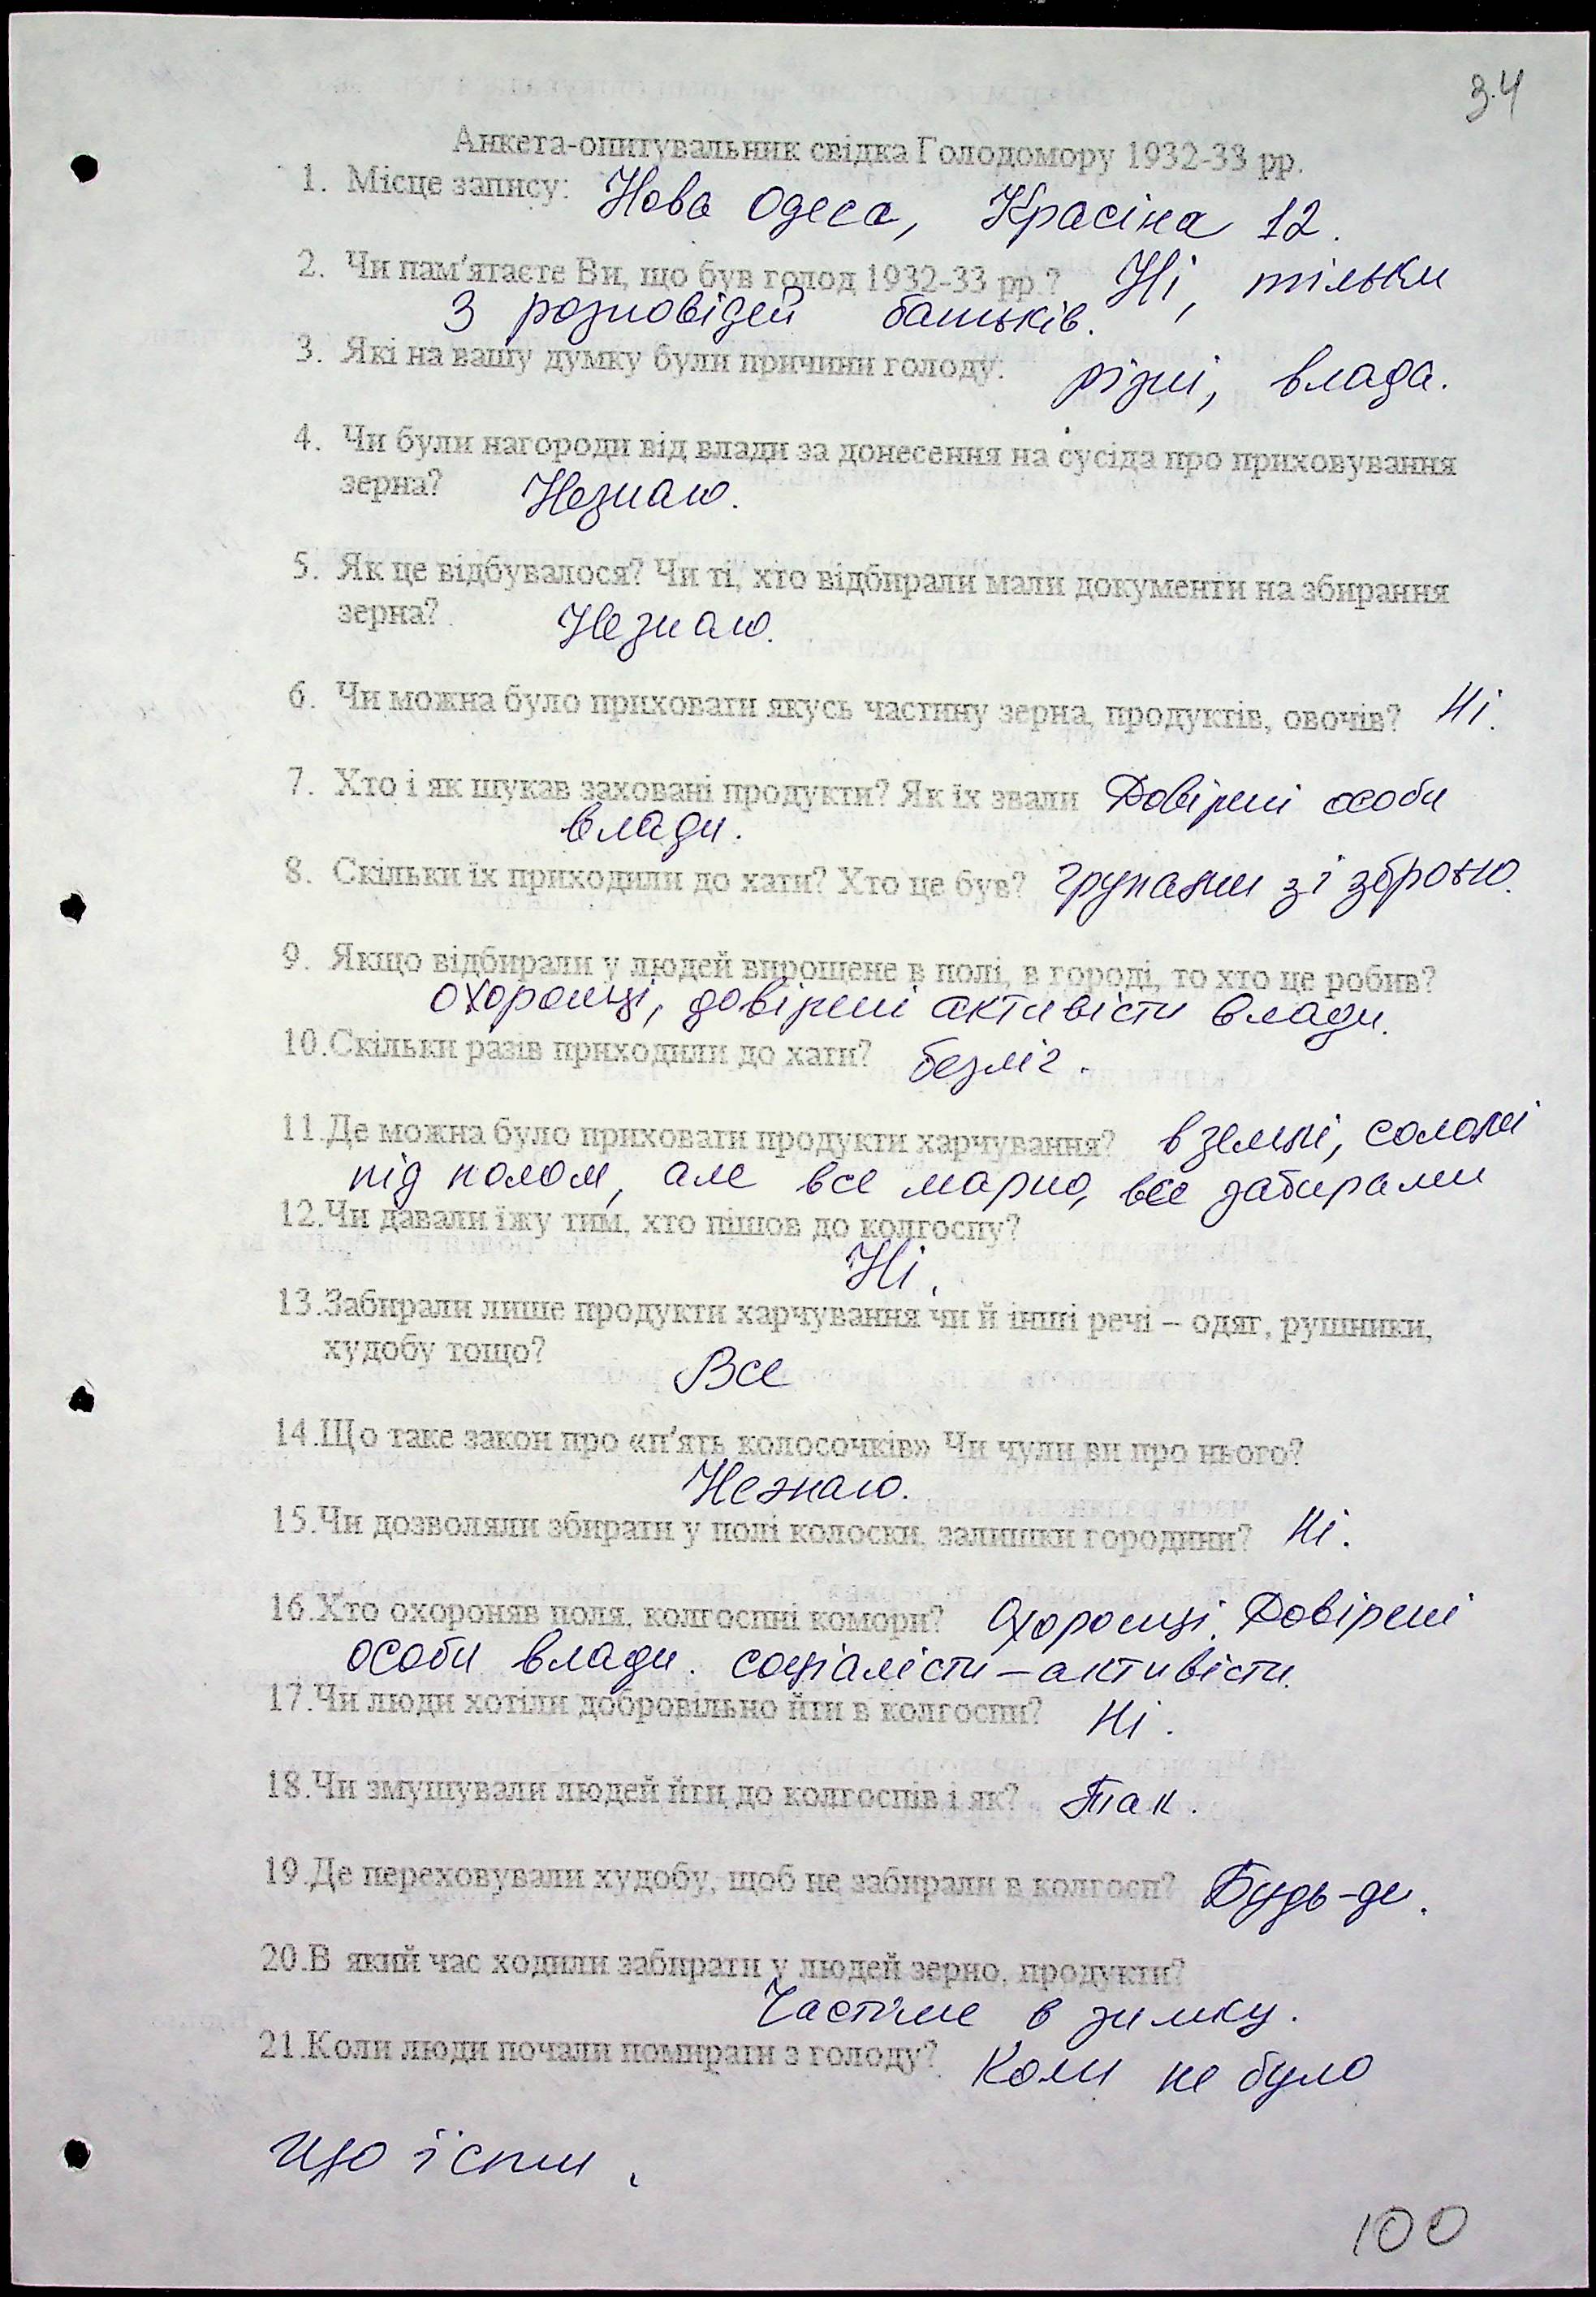 3.4
Анкета-опитувальник свідка Голодомору 1932-33 рр.
1. Місце запису: Нова Одеса, Красіна 12.
2. Чи пам'ятаєте Ви, що був голод 1932-33 рр.? Ні, тільки
з розповідей батьків.
3. Які на вашу думку були причини голоду: різні, влада.
4. Чи були нагороди від влади за донесення на сусіда про приховування
зерна? Незнаю.
5. Як це відбувалося? Чи ті, хто відбирали мали документи на збирання
зерна? Незнаю.
6. Чи можна було приховати якусь частину зерна, продуктів, овочів? Ні.
7. Хто і як шукав заховані продукти? Як їх звали Довірені особи
влади.
8. Скільки їх приходили до хати? Хто це був? групами зі зброєю.
9. Якщо відбирали у людей вирощене в полі, в городі, то хто це робив?
охоронці, довірені активісти влади.
10.Скільки разів приходили до хати? безліч.
11.Де можна було приховати продукти харчування? в землі, соломі
під полом, але все марно, все забирали
12.Чи давали їжу тим, хто пішов до колгоспу?
Ні.
13.Забирали лише продукти харчування чи й інші речі – одяг, рушники,
худобу тощо? Все
14.Що таке закон про «п'ять колосочків» Чи чули ви про нього?
Незнаю.
15.Чи дозволяли збирати у полі колоски, залишки городини? Ні.
16.Хто охороняв поля, колгоспні комори? Охоронці. Довірені
особи влади. соціалісти – активісти.
17.Чи люди хотіли добровільно йти в колгоспи? Ні.
18.Чи змушували людей йти до колгоспів і як? Так.
19.Де переховували худобу, щоб не забирали в колгосп? Будь-де.
20.В який час ходили забирати у людей зерно, продукти?
Частіше в зимку.
21.Коли люди почали помирати з голоду? Коли не було
що їсти.
100